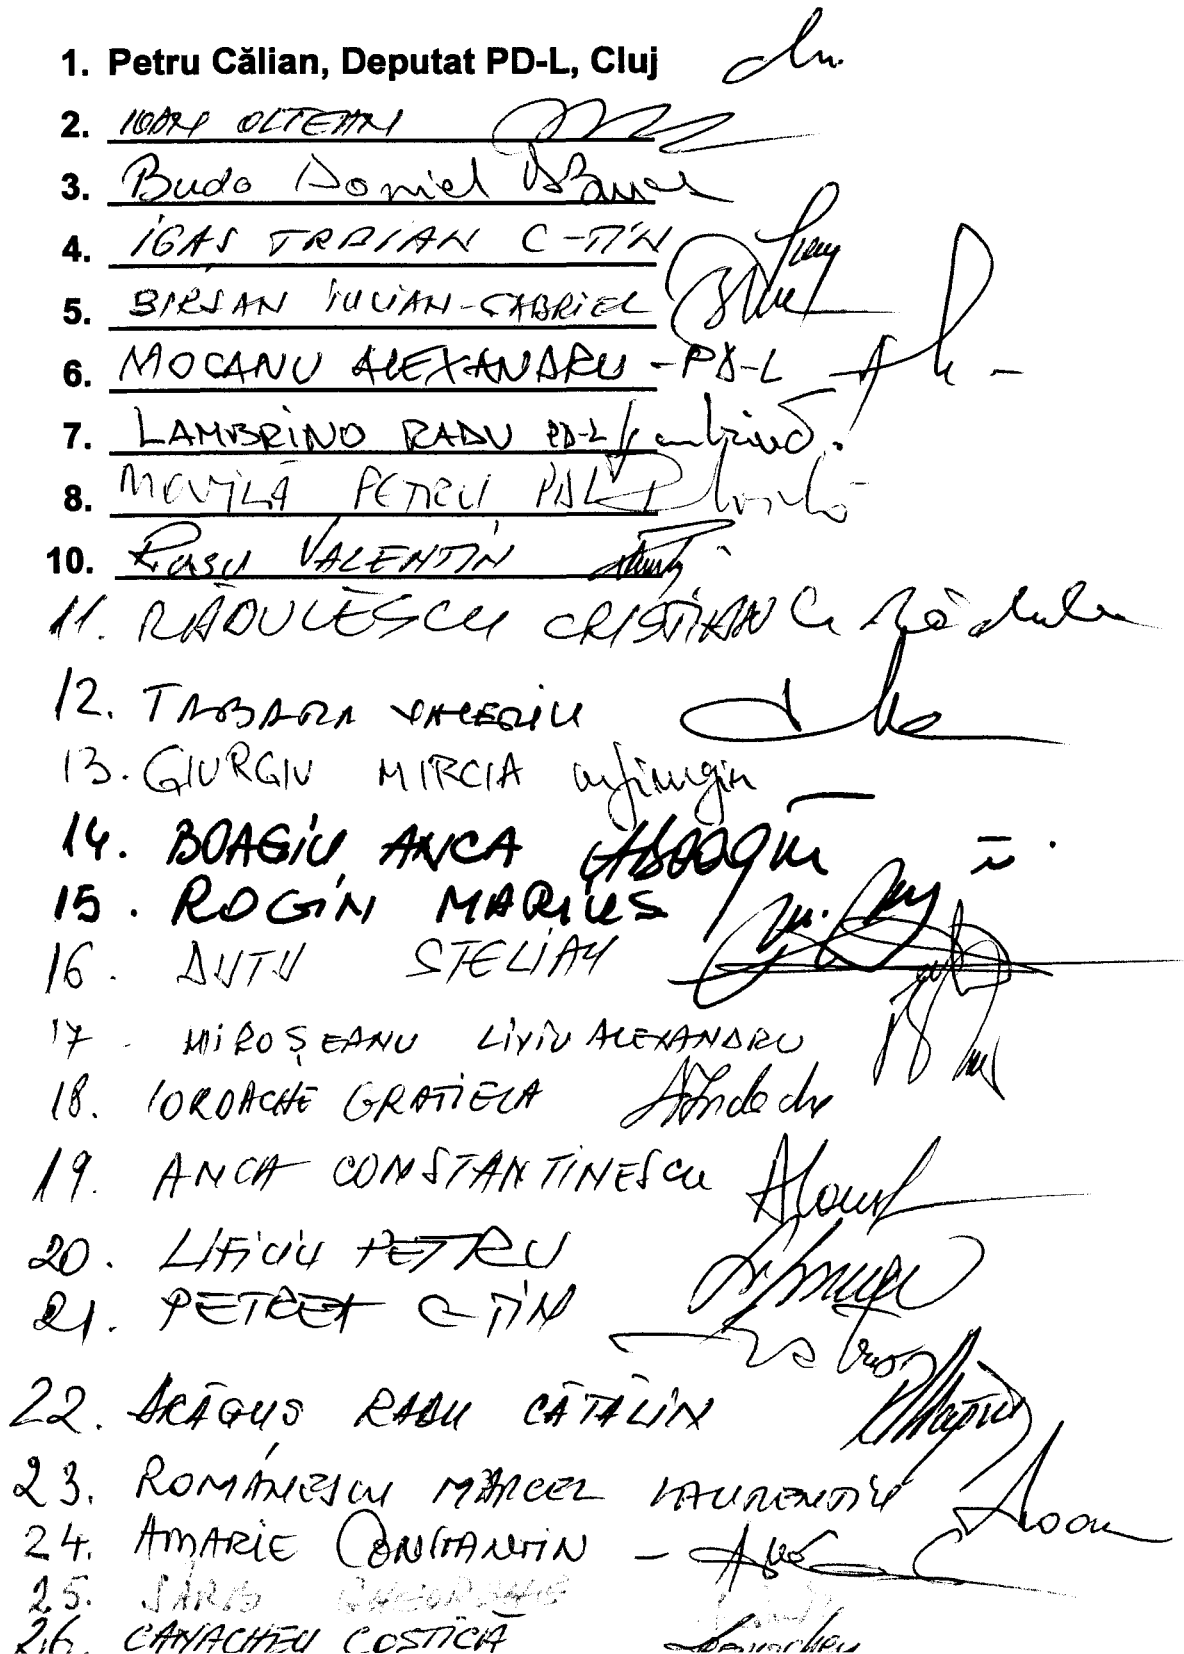 1. Petru Călian, Deputat PD-L, Cluj
2. IOAN OLTEAN
3. Buda Daniel
4. IGAȘ TRAIAN C-TIN
5. BIRSAN IULIAN-GABRIEL
6. MOCANU ALEXANDRU - PD-L
7. LAMBRINO RADU PD-L Lambrino
8. MOVILĂ PETRU PDL
10. Rusu VALENTIN
11. RĂDULESCU CRISTIAN C Rădulescu
12. TABARA VALERIU
13. GIURGIU MIRCIA mgiurgiu
14. BOAGIU ANCA ABoagiu
15. ROGIN MARIUS
16. DUTU STELIAN
17. MIROȘEANU LIVIU ALEXANDRU
18. IORDACHE GRATIELA
19. ANCA CONSTANTINESCU
20. LIFICIU PETRU
21. PETREA C-TIN
22. DRĂGUȘ RADU CĂTĂLIN
23. ROMÂNESCU MARCEL LAURENȚIU
24. AMARIE CONSTANTIN -
25. SÂRB GHEORGHE
26. CANACHEU COSTICĂ Canacheu